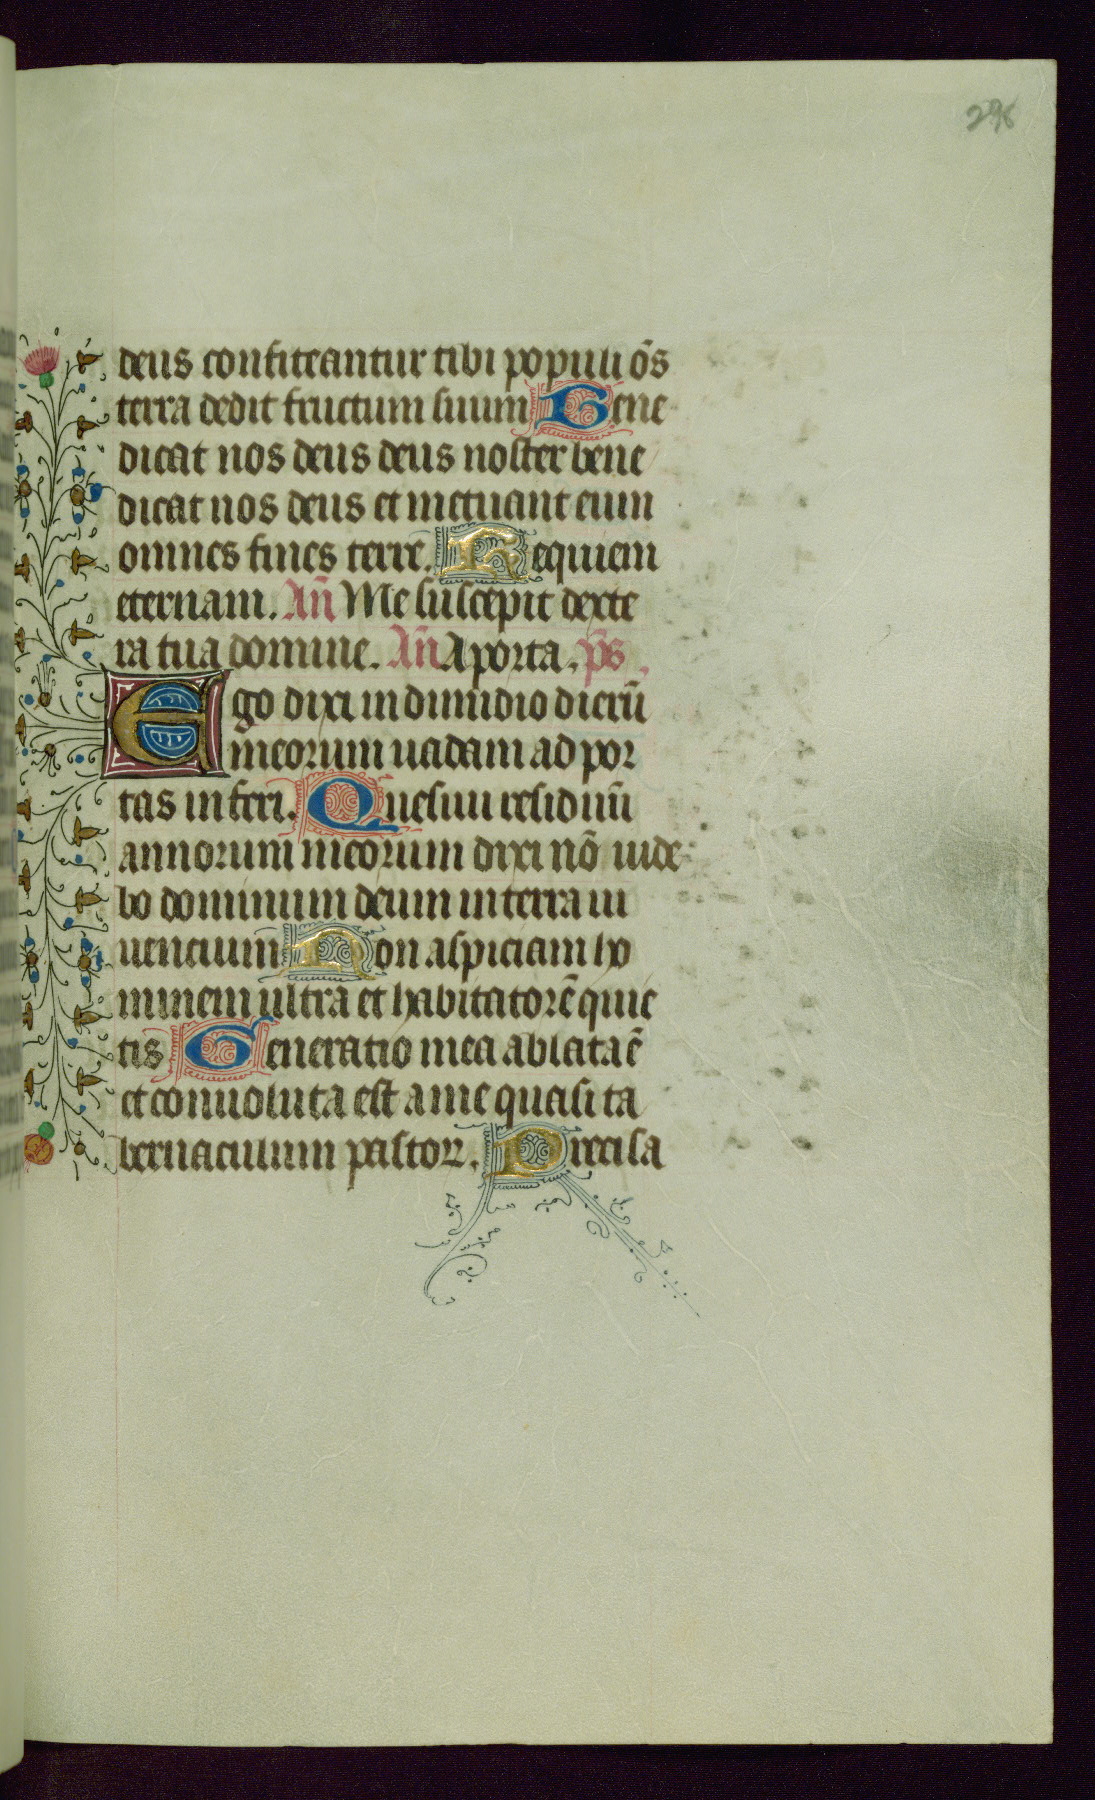 296
deus confiteantur tibi populi o̅s
terra dedit fructum suum Bene
dicat nos deus deus noster bene
dicat nos deus et metuant eum
omnes fines terre. Requiem
eternam. An̅ Me suscepit dexte
ra tua domine. An̅ A porta. ps̅
Ego dixi in dimidio dieru̅
meorum uadam ad por
tas inferi. Quesiui residuu̅
annorum meorum dixi no̅ uide
bo dominum deum in terra ui
uencium Non aspiciam ho
minem ultra et habitatore̅ quie
tis Generatio mea ablata e̅
et conuoluta est a me quasi ta
bernaculum pastorꝝ. Precisa